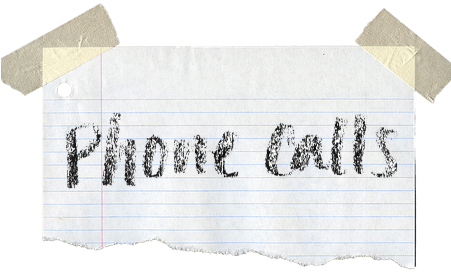 Phone Calls